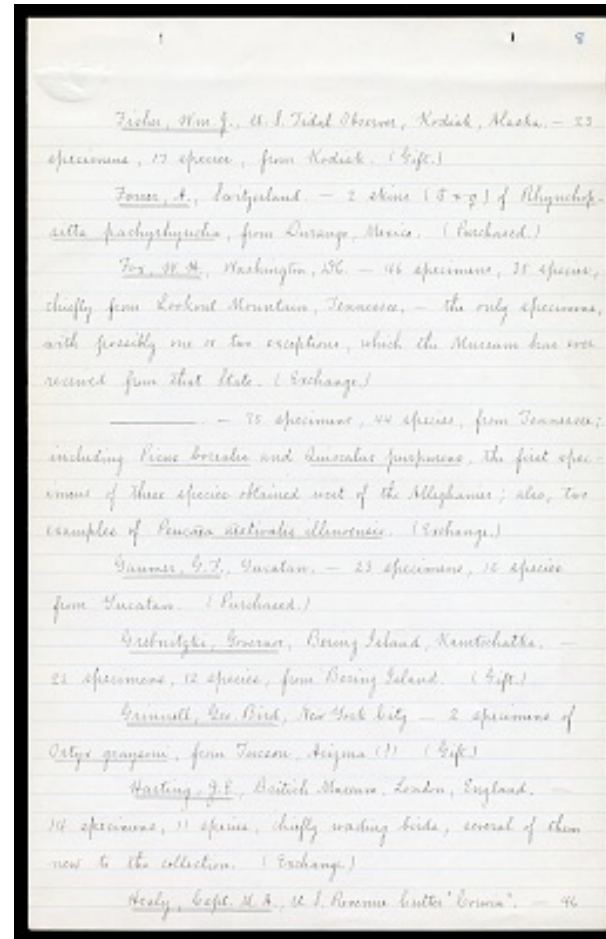 8
Fisher, Wm. J., U. S. Tidal Observer, Kodiak, Alaska. — 23
specimens, 17 species, from Kodiak. (Gift.)
Forrer, A., Switzerland. — 2 skins (♂ + ♀) of Rhynchop-
sitta pachyrhyncha, from Durango, Mexico. (Purchased.)
Fox, W. H., Washington, DC. — 46 specimens, 35 species,
chiefly from Lookout Mountain, Tennessee, — the only specimens,
with possibly one or two exceptions, which the Museum has ever
received from that State. (Exchange.)
———. — 75 specimens, 44 species, from Tennessee;
including Picus borealis and Quiscalus purpureus, the first spec-
imens of these species obtained west of the Alleghanies; also, two
examples of Peucæa æstivalis illinoensis. (Exchange.)
Gaumer, G. F., Yucatan. — 23 specimens, 12 species
from Yucatan. (Purchased.)
Grebnitzki, Governor, Bering Island, Kamtschatka. —
22 specimens, 12 species, from Bering Island. (Gift.)
Grinnell, Geo. Bird, New York City — 2 specimens of
Ortyx graysoni, from Tucson, Arizona (!) (Gift.)
Harting, J. E., British Museum, London, England. —
specimens, 11 species, chiefly wading birds, several of them
new to the collection. (Exchange.)
Healy, Capt. M. A., U. S. Revenue Cutter "Corwin". — 46